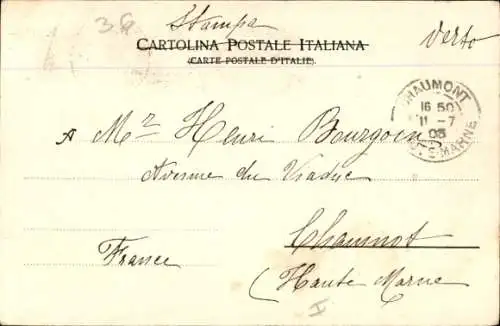 3.
Stampa
CARTOLINA POSTALE ITALIANA
(CARTE POSTALE D'ITALIE)
Verso
CHAUMONT
16 50
11 - 7
05
HTE-MARNE
A Mr Henri Bourgoin
Avenue du Viaduc
Chaumont
France
(Haute Marne
I